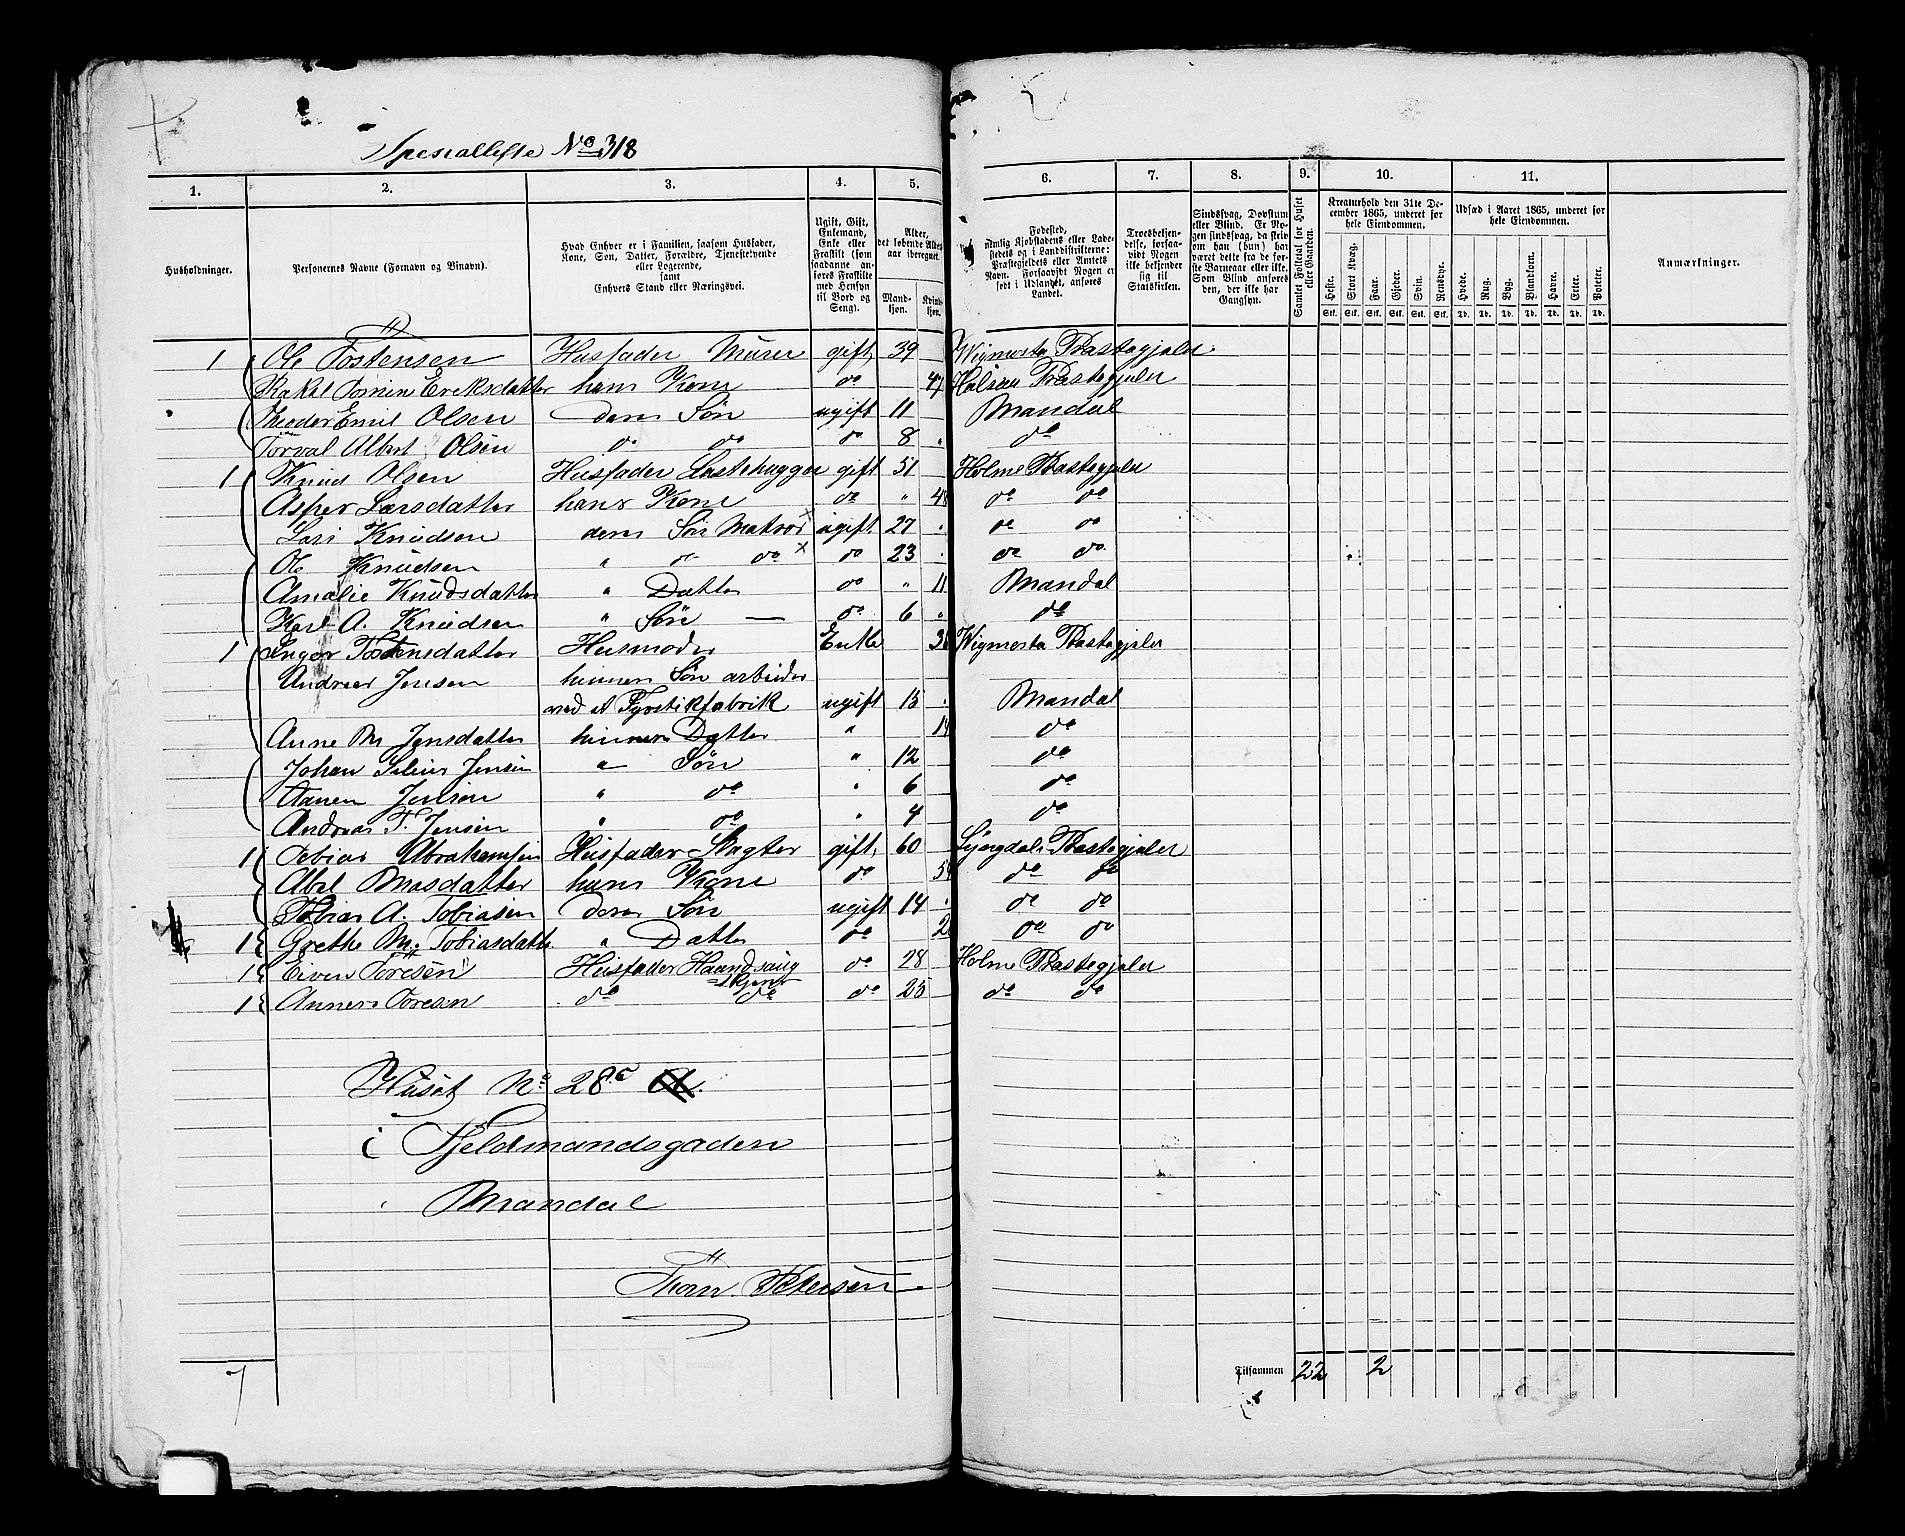 Specialliste No 318
1. 2. 3. 4. 5. 6. 7. 8. 9. 10. 11.
Husholdninger.
Personernes Navne (Fornavn og Tilnavn).
Hvad Enhver er i Familien, saasom Husfader, Kone, Søn, Datter, Forældre, Tjenestetyende eller Logerende, samt Enhvers Stand eller Næringsvei.
Ugift, Gift, Enkemand, Enke eller Fraskilt (som saadanne anføres Fraskilte med Hensyn til Bord og Seng).
Alder, det løbende Alders aar iberegnet.
Mandkjøn. Kvindkjøn.
Fødested, nemlig Kjøbstadens eller Ladestedets og i Landdistrikterne: Præstegjeldets eller Amtets Navn. Forsaavidt Nogen er født i Udlandet, anføres Landet.
Troesbekjendelse, forsaavidt Nogen ikke bekjender sig til Statskirken.
Sindssvag, Døvstum eller Blind. Er Nogen sindssvag, da skrives om han (hun) har været dette fra de første Barneaar eller ikke. Som Blind anføres den, der ikke har Gangsyn.
Samlet Folketal for Huset eller Gaarden.
Kreaturhold den 31te December 1865, underet for hele Eiendommen.
Heste. Stort Kvæg. Faar. Gjeder. Svin. Rensdyr.
Stk. Stk. Stk. Stk. Stk. Stk.
Udsæd i Aaret 1865, underet for hele Eiendommen.
Hvede. Rug. Byg. Blandkorn. Havre. Erter. Poteter.
Td. Td. Td. Td. Td. Td. Td.
Anmærkninger.
1 Ole Tostensen Husfader Murer gift 39 Wigmosta Præstegjeld
Rakel Tomine Eriksdatter hans Kone do 47 Halsaa Præstegjeld
Theodor Emil Olsen deres Søn ugift 11 Mandal
Torval Albert Olsen do do do 8 do
1 Knud Olsen Husfader Lastehugger gift 51 Holme Præstegjeld
Asper Larsdatter hans Kone do " 48 do do
Lars Knudsen deres Søn Matros ugift 27 do do
Ole Knudsen " do do do 23 do do
Amalie Knudsdatter " Datter do " 11 Mandal
Karl A. Knudsen " Søn — do 6 do
1 Inger Tostensdatter Husmoder Enke Wigmosta Præstegjeld
Andreas Jensen hennes Søn arbeider
ved et Fyrstikfabrik ugift 15 Mandal
Anne M Jensdatter hennes Datter " 14 do
Johan Jensen " Søn " 12 do
Aanen Jensen " do " 6 do
Andreas T. Jensen " do " 4 do
1 Tobias Abrahamsen Husfader Slagter gift 60 Lyngdals Præstegjeld
Abel Masdatter hans Kone do do do
Tobias A. Tobiasen deres Søn ugift 14 do do
1 Grethe M. Tobiasdatter " Datter do do do
1 Eiven Toresen Husfader Haandsaug
skjerer do 28 Holme Præstegjeld
1 Anners Toresen do do do 25 do do
Huset No 28c
i Fjeldmandsgaden
Mandal
Thom Petersen
7
Tilsammen 22 2